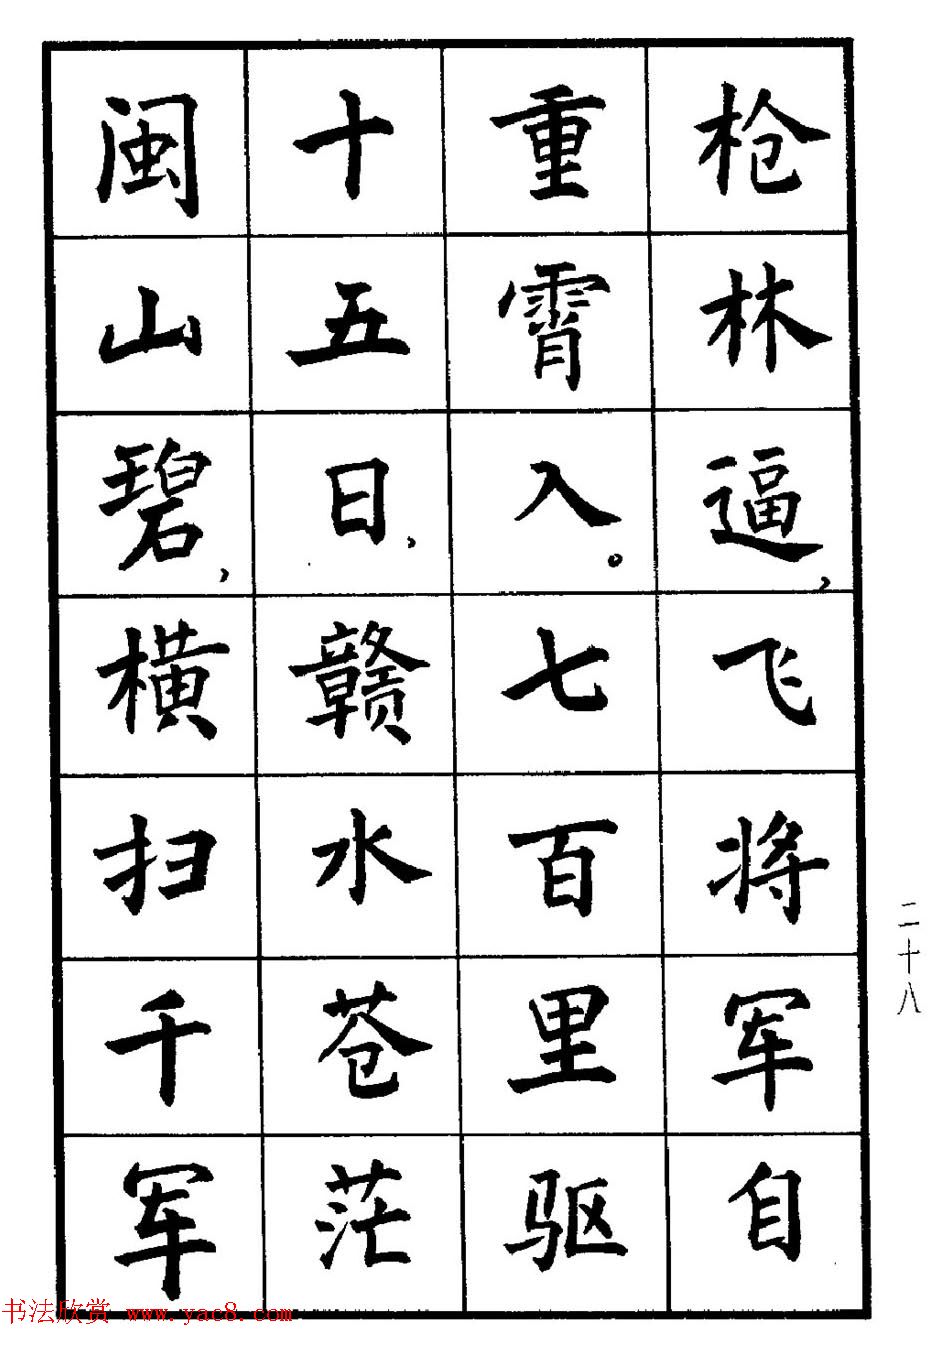 枪林逼，飞将军自
重霄入。七百里驱
十五日，赣水苍茫
闽山碧，横扫千军
二十八
书法欣赏 www.yac8.com